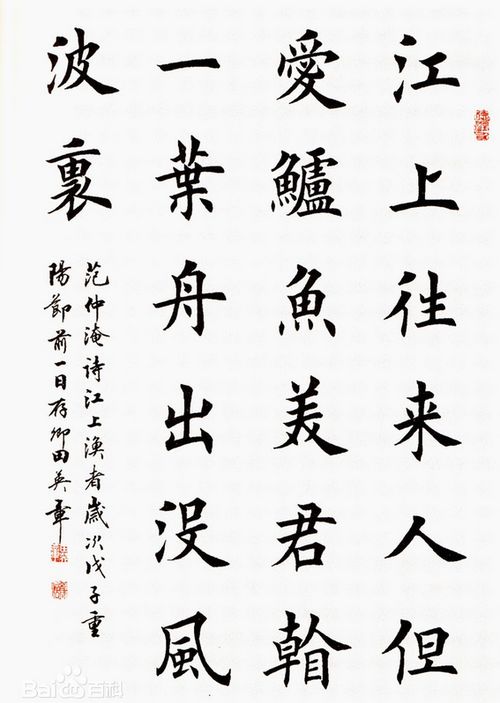 江上往来人但
愛鱸魚美君看
一葉舟出没風
波裏
范仲淹詩江上漁者歲次戊子重
陽節前一日存卿田英章
Bai百科